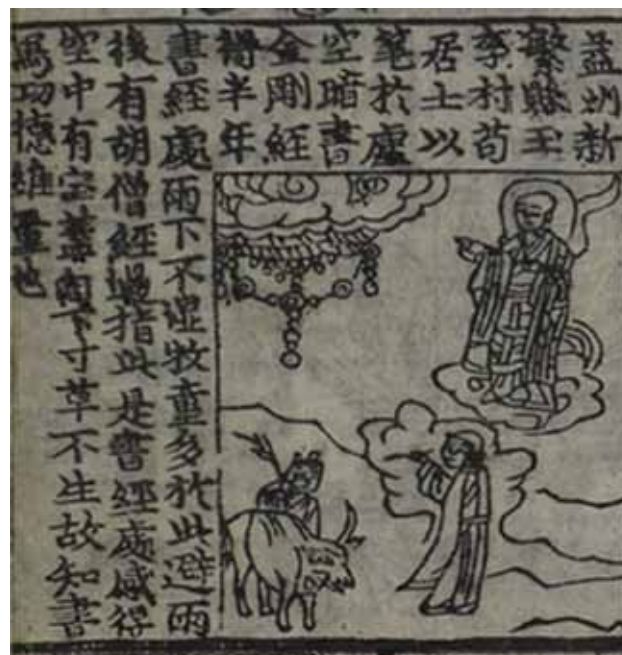 益州新
繁縣王
李村苟
居士以
筆於虛
空暗書
金剛經
半年
書經處雨下不湿牧童多於此避雨
後有胡僧經過指此是書經處感得
空中有宝蓋向下寸草不生故知書
寫功德難量也